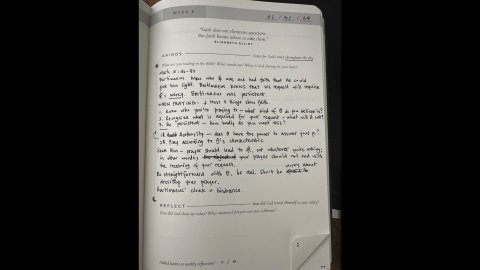 WEEK 5
01 / 31 / 24
"Faith does not eliminate questions.
But faith knows where to take them."
ELISABETH ELLIOT
KAIROS
listen for God's voice throughout the day
What are you reading in the Bible? What stands out? What is God placing on your heart?
Mark 10:46-52
Bartimaeus knew who J was and had faith that He could
give him sight. Bartimaeus knew that his request will require
J's mercy. Bartimaeus was persistent.
WHEN PRAYING: ↓ these 3 things show faith.
1. Know who you're praying to - what kind of G do you believe in?
2. Recognize what is required for your request - what will it cost?
3. Be persistent - how badly do you want this?
Authority - does G have the power to answer your p.?
Pray according to G's characteristic
Seek Him - prayer should lead to G, not whatever you're asking;
in other words, your prayer should not end with
the receiving of your request.
Be straightforward with G, be real. Don't be
dressing your prayer.
Bartimaeus' cloak = hindrance.
REFLECT
how did God reveal Himself to you today?
How did God show up today? What answered prayers can you celebrate?
Added names to weekly reflection? Y / N